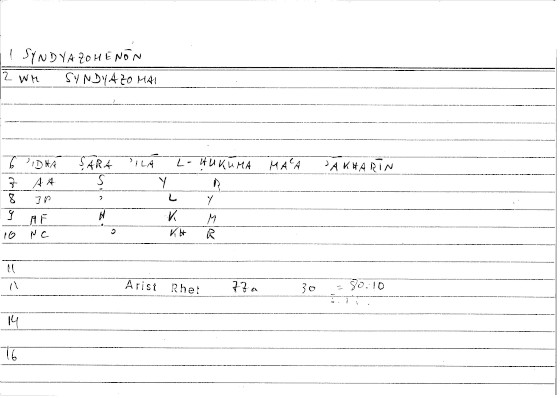 1 SYNDYAZOMENŌN
2 WM SYNDYAZOMAI
6 'IDHĀ ṢĀRA 'ILĀ L-ḤUKŪMA MAʿA 'ĀKHARĪN
7 AA Ṣ Y R
8 3P ' L Y
9 MF Ḥ K M
10 NC ' KH R
11
11 Arist Rhet 77a 30 = 80.10
14
16